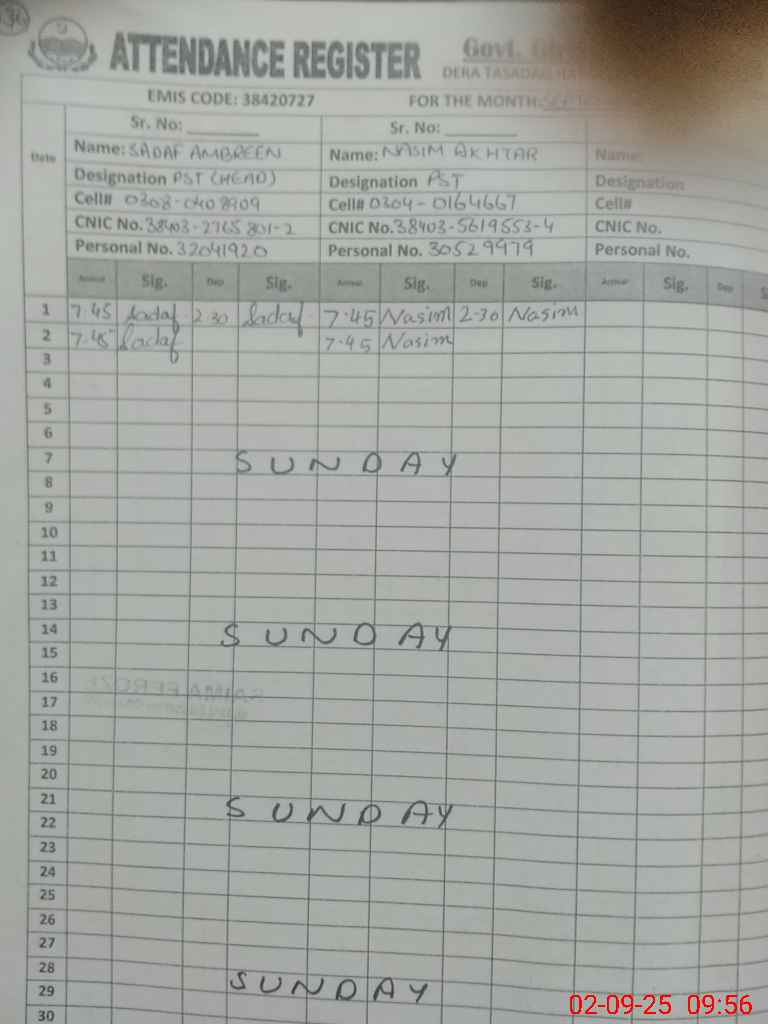 36
ATTENDANCE REGISTER
Govt.
DERA TASADAQ
EMIS CODE: 38420727
FOR THE MONTH:
Sr. No: Sr. No:
Date
Name: SADAF AMBREEN Name: NASIM AKHTAR Name:
Designation PST (HEAD) Designation PST Designation
Cell# 0308-0408909 Cell# 0304-0164667 Cell#
CNIC No. 38403-2765801-2 CNIC No. 38403-5619553-4 CNIC No.
Personal No. 32041920 Personal No. 30529979 Personal No.
Arrival Sig. Dep Sig. Arrival Sig. Dep Sig. Arrival Sig. Dep S
1 7.45 Sadaf 2 30 Sadaf 7.45 Nasim 2-30 Nasim
2 7.45 Sadaf 7.45 Nasim
3
4
5
6
7 SUNDAY
8
9
10
11
12
13
14 SUNDAY
15
16
17
18
19
20
21 SUNDAY
22
23
24
25
26
27
28 SUNDAY
29
30
02-09-25 09:56